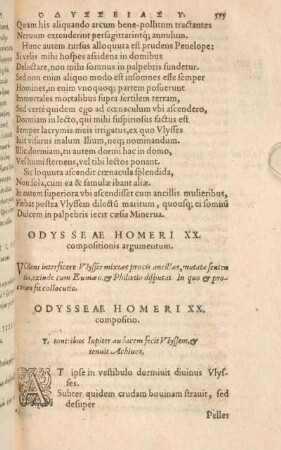 ΟΔΥΣΣΕΙΑΣ Υ. 575
Quam his aliquando arcum bene-politum tractantes
Neruum extenderint persagittarintq; annulum.
Hanc autem rursus alloquuta est prudens Penelope:
Si velis mihi hospes assidens in domibus
Delectare, non mihi somnus in palpebris fundetur.
Sed non enim aliquo modo est insomnes esse semper
Homines, in enim vnoquoq; partem posuerunt
Immortales mortalibus supra fertilem terram,
Sed certè quidem ego ad cœnaculum vbi ascendero,
Dormiam in lecto, qui mihi suspiriosus factus est
Semper lacrymis meis irrigatus, ex quo Vlysses
Iuit visurus malum Ilium, neq; nominandum.
Illic dormiam, tu autem dormi hac in domo,
Vel humi sternens, vel tibi lectos ponant.
Sic loquuta ascendit cœnacula splendida,
Non sola, cum ea & famulæ ibant aliæ.
In autem superiora vbi ascendisset cum ancillis mulieribus,
Flebat postea Vlyssem dilectū maritum, quousq; ei somnū
Dulcem in palpebris iecit cæsia Minerua.
ODYSSEAE HOMERI XX.
compositionis argumentum.
Vltima interficere Vlysses mixtas procis ancillas, mutatæ senten
tia, exinde cum Eumæo, & Philætio disputat. In quo & pro
corum fit collocutio.
ODYSSEAE HOMERI XX.
compositio.
Y. tonitribus Iupiter audacem fecit Vlyssem, &
tenuit Achiuos,
AT ipse in vestibulo dormiuit diuinus Vlys-
ses.
Subter quidem crudam bouinam strauit, sed
desuper
Pelles